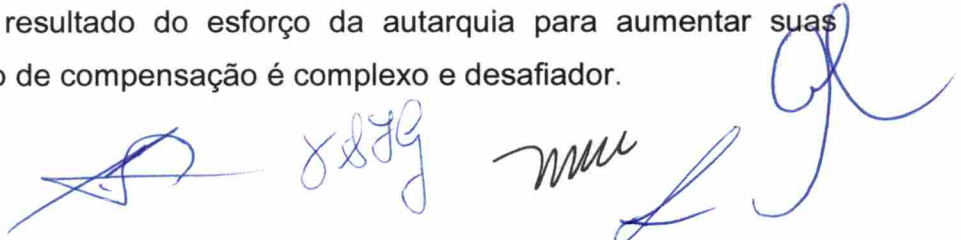 resultado do esforço da autarquia para aumentar suas
o de compensação é complexo e desafiador.